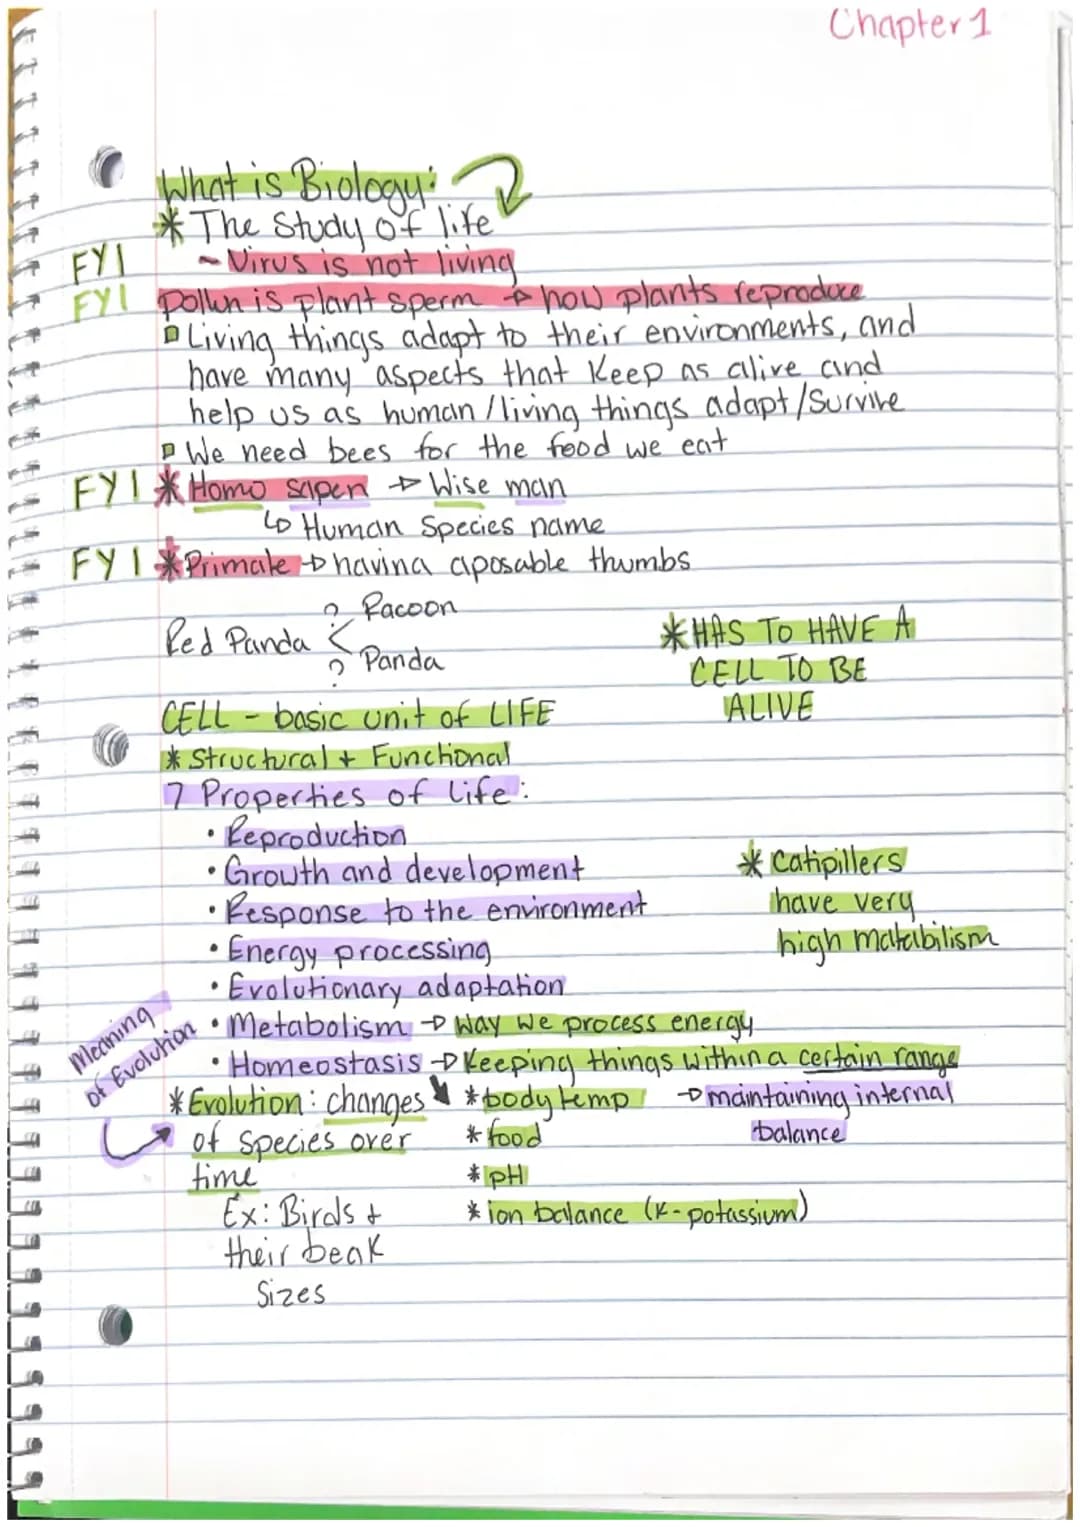 Chapter 1
What is Biology:
* The Study of life
FYI ~ Virus is not living
FYI Pollun is plant sperm → how plants reproduce
Living things adapt to their environments, and
have many aspects that Keep as alive and
help us as human / living things adapt / Survive
We need bees for the food we eat
FYI * Homo sapen → Wise man
↳ Human Species name
FYI * Primate → havina aposable thumbs
? Racoon
Red Panda <
? Panda
* HAS TO HAVE A
CELL TO BE
ALIVE
CELL - basic unit of LIFE
* Structural + Functional
7 Properties of Life:
• Reproduction
• Growth and development
• Response to the environment
• Energy processing
• Evolutionary adaptation
* Catipillers
have very
high matabilism
• Metabolism → Way we process energy
• Homeostasis → Keeping things within a certain range
Meaning
of Evolution
* Evolution: changes
of species over
time
Ex: Birds +
their beak
Sizes
* body temp → maintaining internal
balance
* food
* pH
* ion balance (K - potassium)